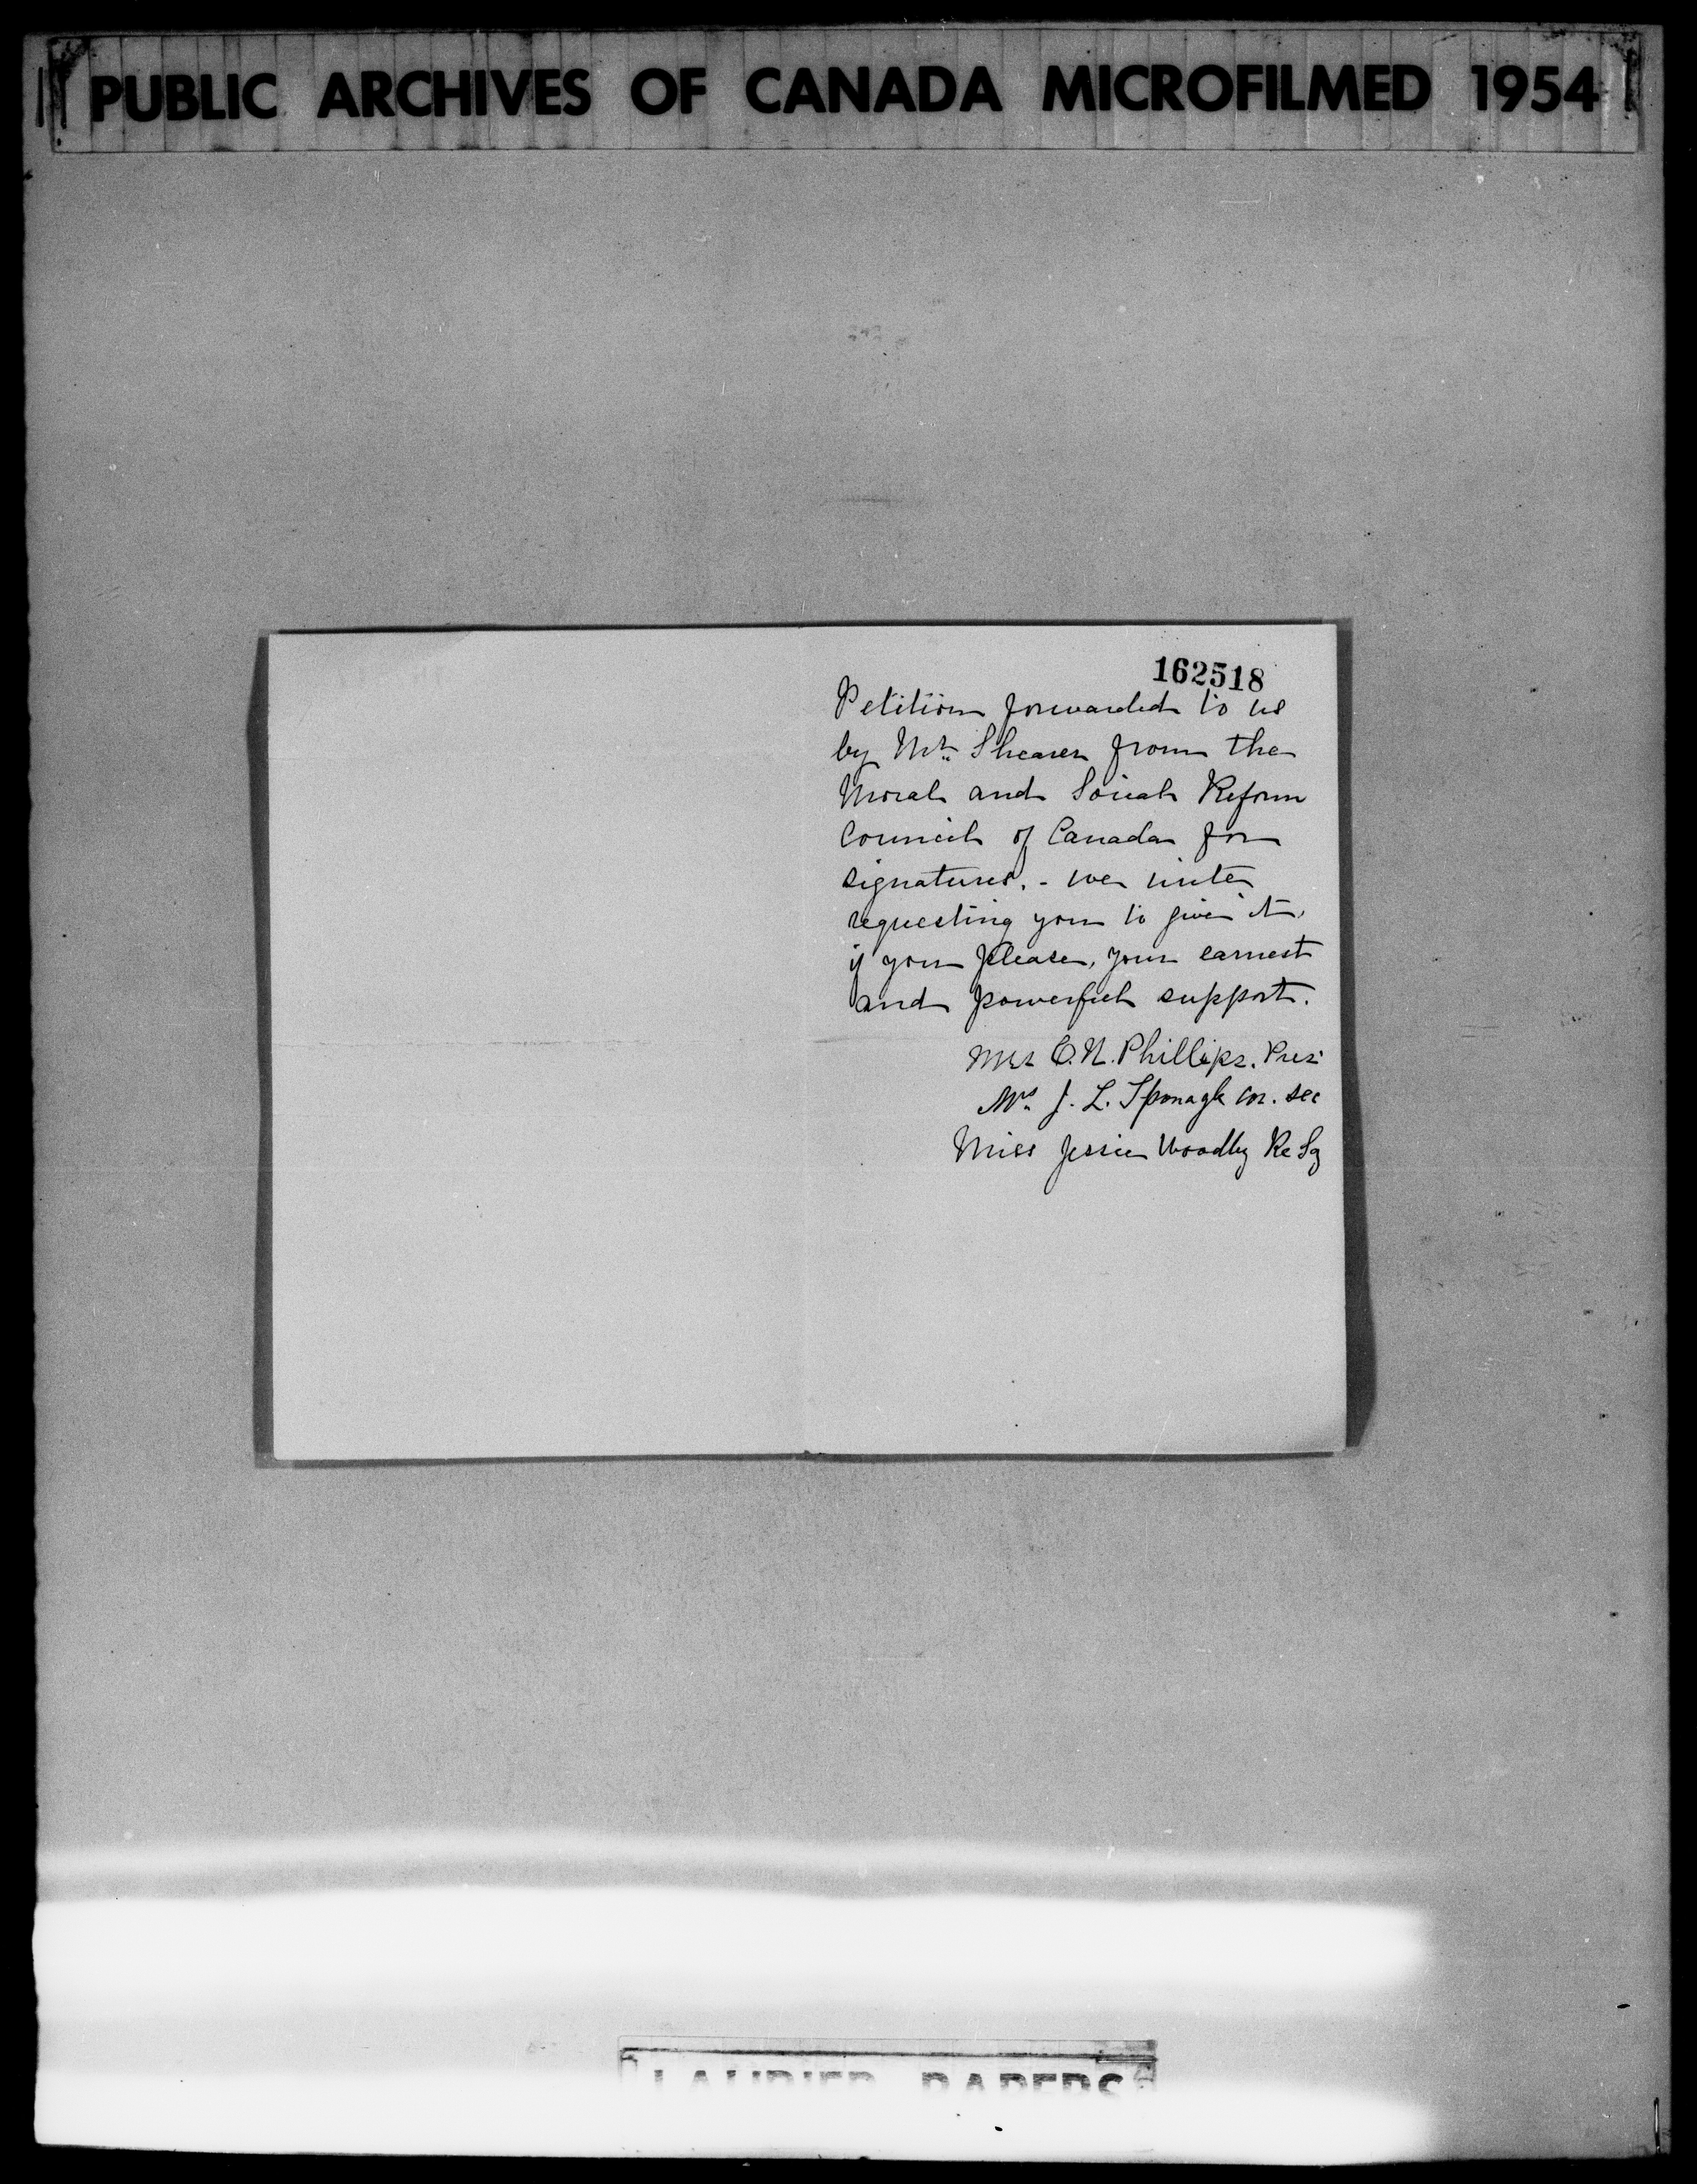 PUBLIC ARCHIVES OF CANADA MICROFILMED 1954
162518
Petition forwarded to us
by Mr. Shearer from the
Moral and Social Reform
Council of Canada for
signatures. - we unite
requesting you to give it,
if you please, your earnest
and powerful support.
Mrs C. N. Phillips. Pres.
Mrs. J. L. Sponagle Cor. Sec
Miss Jessie Woodby Re Sy
LAURIER PAPERS